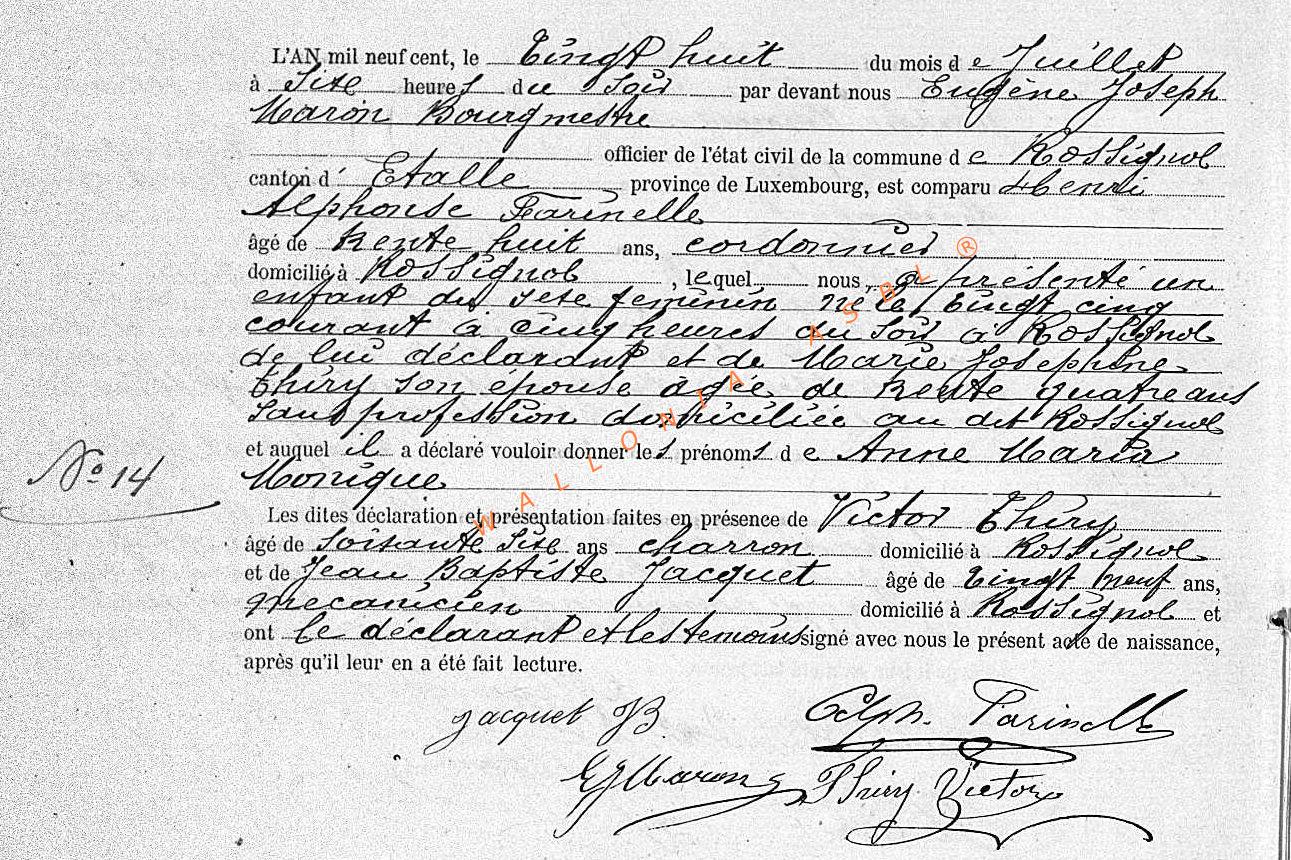 L'AN mil neuf cent, le Vingt huit du mois de Juillet
à Six heures du Soir par devant nous Eugène Joseph
Maron Bourgmestre
officier de l'état civil de la commune de Rossignol
canton d' Etalle province de Luxembourg, est comparu Henri
Alphonse Farinelle
âgé de trente huit ans, cordonnier
domicilié à Rossignol, lequel nous a présenté un
enfant du sexe feminin né le Vingt cinq
courant à cinq heures du Soir à Rossignol
de lui déclarant et de Marie Josephine
Thiry son épouse âgée de trente quatre ans
Sans profession domiciliée au dit Rossignol
et auquel il a déclaré vouloir donner les prénoms de Anne Maria
No 14
Monique
Les dites déclaration et présentation faites en présence de Victor Thiry
âgé de soixante Six ans charron domicilié à Rossignol
et de Jean Baptiste Jacquet âgé de Vingt neuf ans,
mecanicien domicilié à Rossignol et
ont le déclarant et les temoins signé avec nous le présent acte de naissance,
après qu'il leur en a été fait lecture.
Jacquet JB. Alph. Farinelle
EJMaron Thiry Victor
WALLONIA ASBL ®